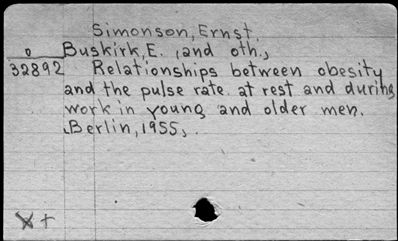 Simonson, Ernst.
o Buskirk, E., and oth.,
32892 Relationships between obesity
and the pulse rate at rest and during
work in young and older men.
Berlin, 1955, .
X+